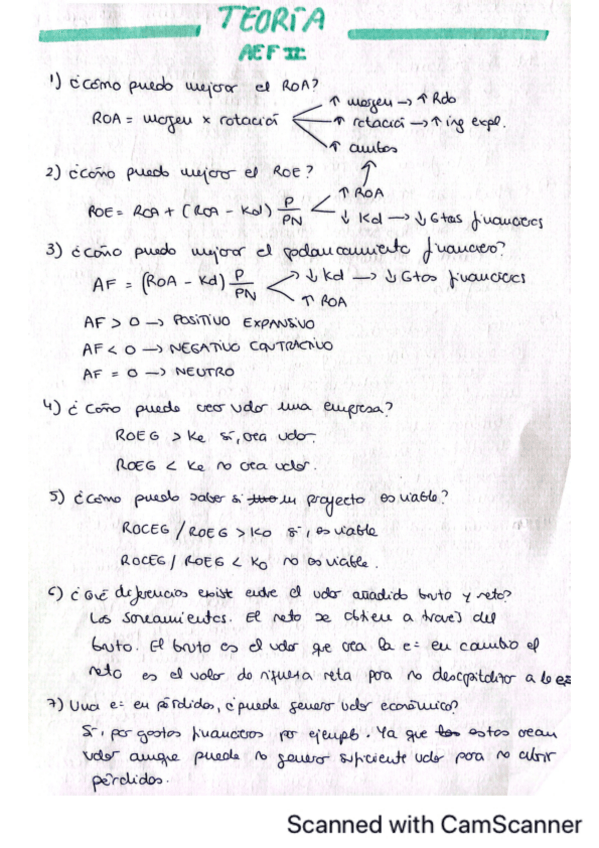 TEORÍA
AEF II:
1) ¿Cómo puedo mejorar el ROA?
ROA = margen x rotación
↑ margen → ↑ Rdo
↑ rotación → ↑ ing expl.
↑ ambos
2) ¿Cómo puedo mejorar el ROE?
ROE = ROA + (ROA - Kd) P/PN
↑ ROA
↓ Kd → ↓ Gtos financieros
3) ¿Cómo puedo mejorar el apalancamiento financiero?
AF = (ROA - Kd) P/PN
↓ Kd → ↓ Gtos financieros
↑ ROA
AF > 0 → POSITIVO EXPANSIVO
AF < 0 → NEGATIVO CONTRACTIVO
AF = 0 → NEUTRO
4) ¿Cómo puede crear valor una empresa?
ROEG > Ke sí, crea valor.
ROEG < Ke no crea valor.
5) ¿Cómo puedo saber si un proyecto es viable?
ROCEG / ROEG > Ko sí, es viable
ROCEG / ROEG < Ko no es viable.
6) ¿Qué diferencias existe entre el valor añadido bruto y neto?
Los soneamientos. El neto se obtiene a través del
bruto. El bruto es el valor que crea la e= en cambio el
neto es el valor de riqueza neta para no descapitalizar a la
7) Una e= en pérdidas, ¿puede generar valor económico?
Sí, por gastos financieros por ejemplo. Ya que estos crean
valor aunque puede no generar suficiente valor para no cubrir
pérdidos.
Scanned with CamScanner